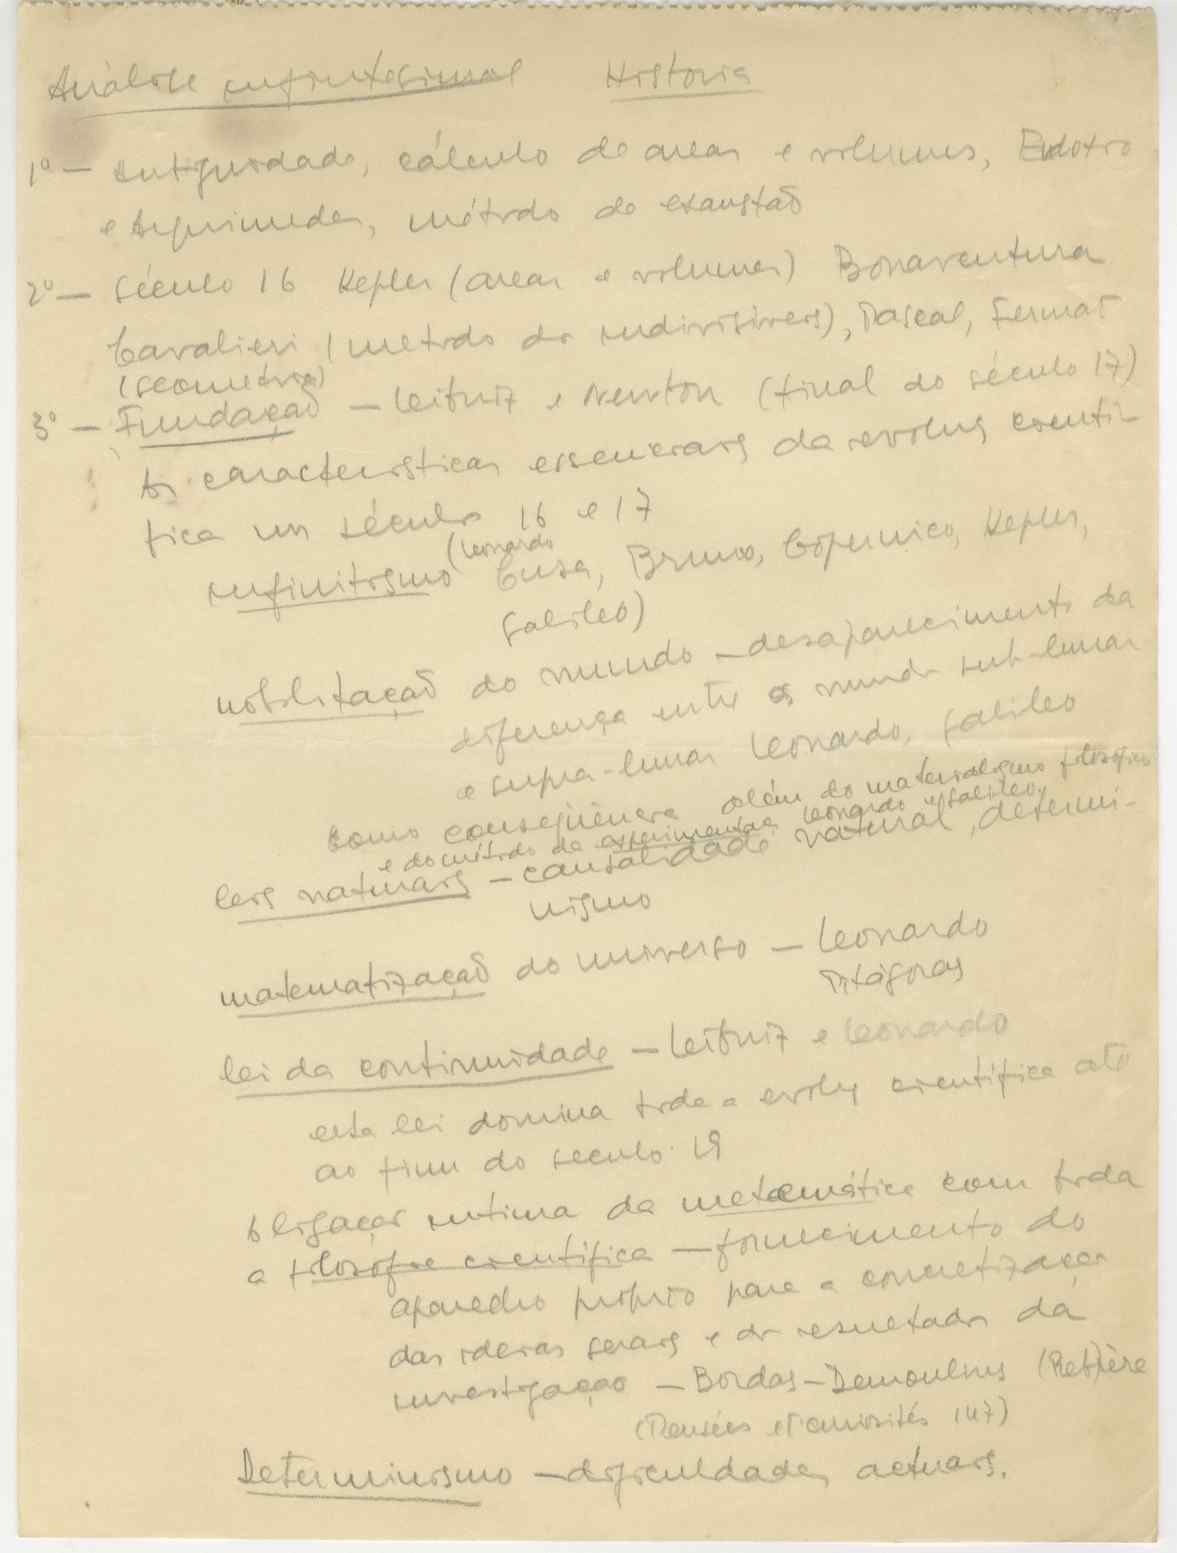 Análise infinitesimal História
1º — Antiguidade, cálculo de areas e volumes, Eudoxio
e Arquimedes, método de exaustão
2º — século 16 Kepler (areas e volumes) Bonaventura
Cavalieri (metodo dos indivisiveis), Pascal, Fermat
(geometria)
3º — Fundação — Leibniz e Newton (final do século 17)
As caracteristicas essenciais da revoluç cientí-
fica nos séculos 16 e 17
(Leonardo
infinitismo Cusa, Bruno, Copernico, Kepler,
Galileo)
nobilitação do mundo — desaparecimento da
diferença entre os mundos sub-lunar
e supra-lunar Leonardo, Galileo
como conseqüencia além do materialismo filosófico
e do método da experimentaç Leonardo e Galileo,
leis naturais — causalidade natural, determi-
nismo
matematização do universo — Leonardo
Pitágoras
lei da continuidade — Leibniz e Leonardo
esta lei domina toda a evoluç cientifica até
ao fim do seculo 19
A ligação intima da matemática com toda
a filosofia cientifica — fornecimento do
aparelho próprio para a concretização
das ideias gerais e dos resultados da
investigação — Bordas-Demoulins (Rebière
(Pensées et curiosités 147)
Determinismo — dificuldades actuais.